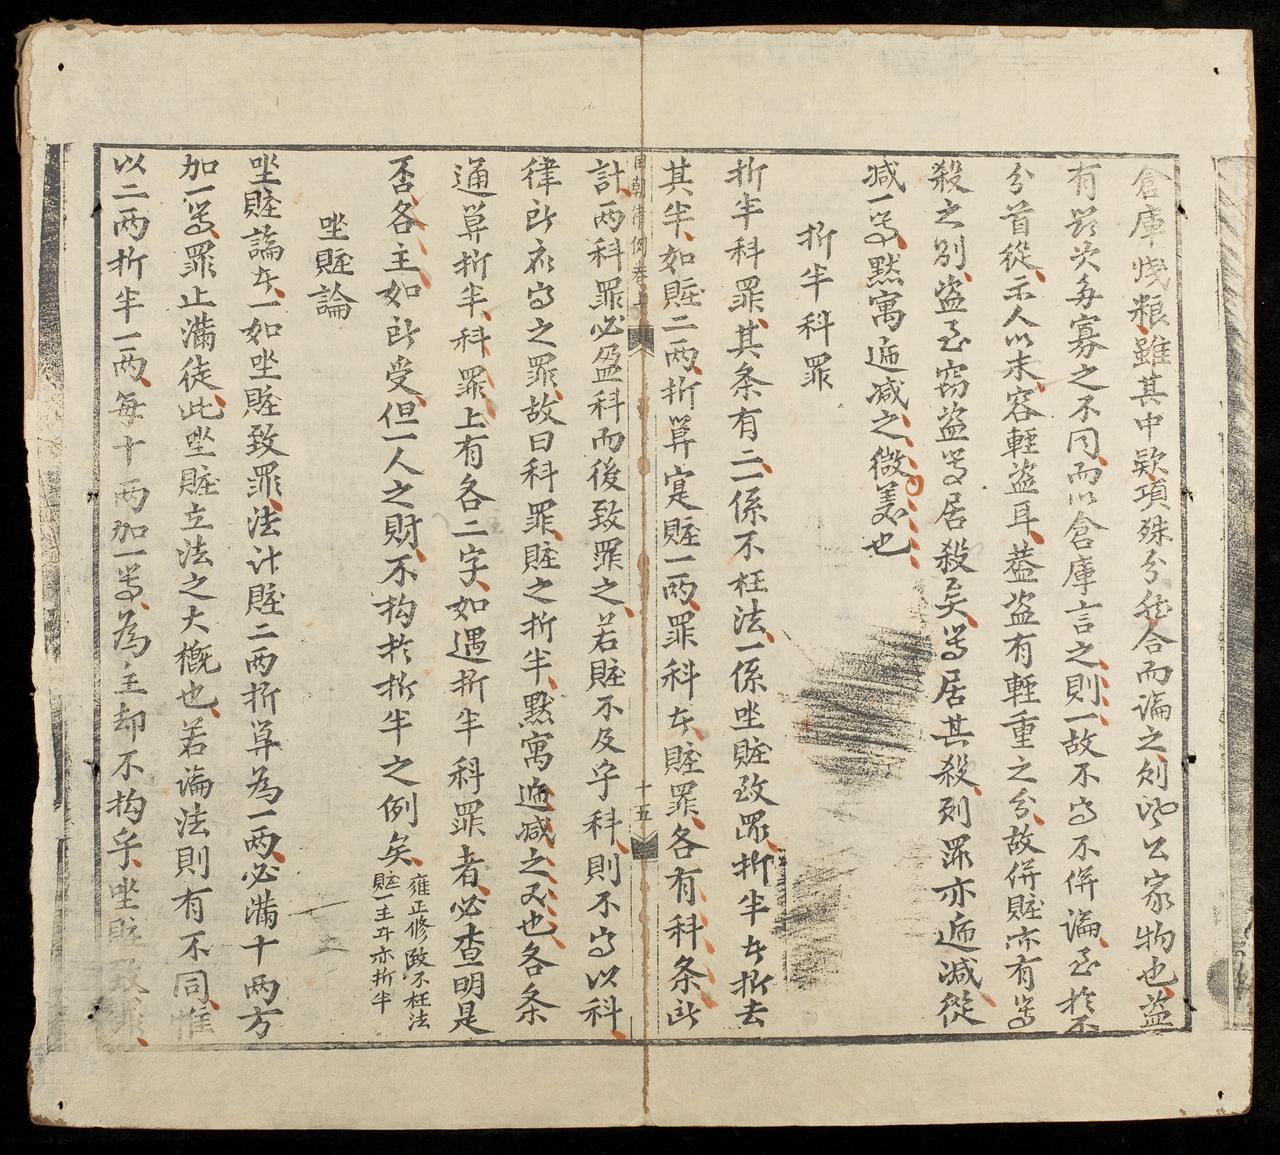 倉庫戔粮雖其中款項殊分然合而論之則皆公家物也盜
有是次多寡之不同而以倉庫言之則一故不為不併論至於不
分首從示人以未容輕盜耳蓋盜有輕重之分故併賍亦有為
殺之別盜至窃盜為居殺矣為居其殺列罪亦逓減從
減一等默寓逓減之微美也
折半科罪
折半科罪其条有二係不枉法一係坐賍致罪折半者折去
其半如賍二两折算寔賍一两罪科本賍罪各有科条此
計两科罪必盈科而後致罪之若賍不及乎科則不為以科
律所應为之罪故曰科罪賍之折半默寓逓減之义也各条
通算折半科罪上有各二字如遇折半科罪者必查明是
否各主如所受但一人之財不拘於折半之例矣雍正修改不枉法
賍一主耳亦折半
坐賍論
坐賍論者一如坐賍致罪法计賍二两折算為一两必满十两方
加一等罪止满徒此坐賍立法之大概也若論法則有不同惟
以二两折半一两每十两加一等為主却不拘乎坐賍致罪
國朝律例卷上
十五